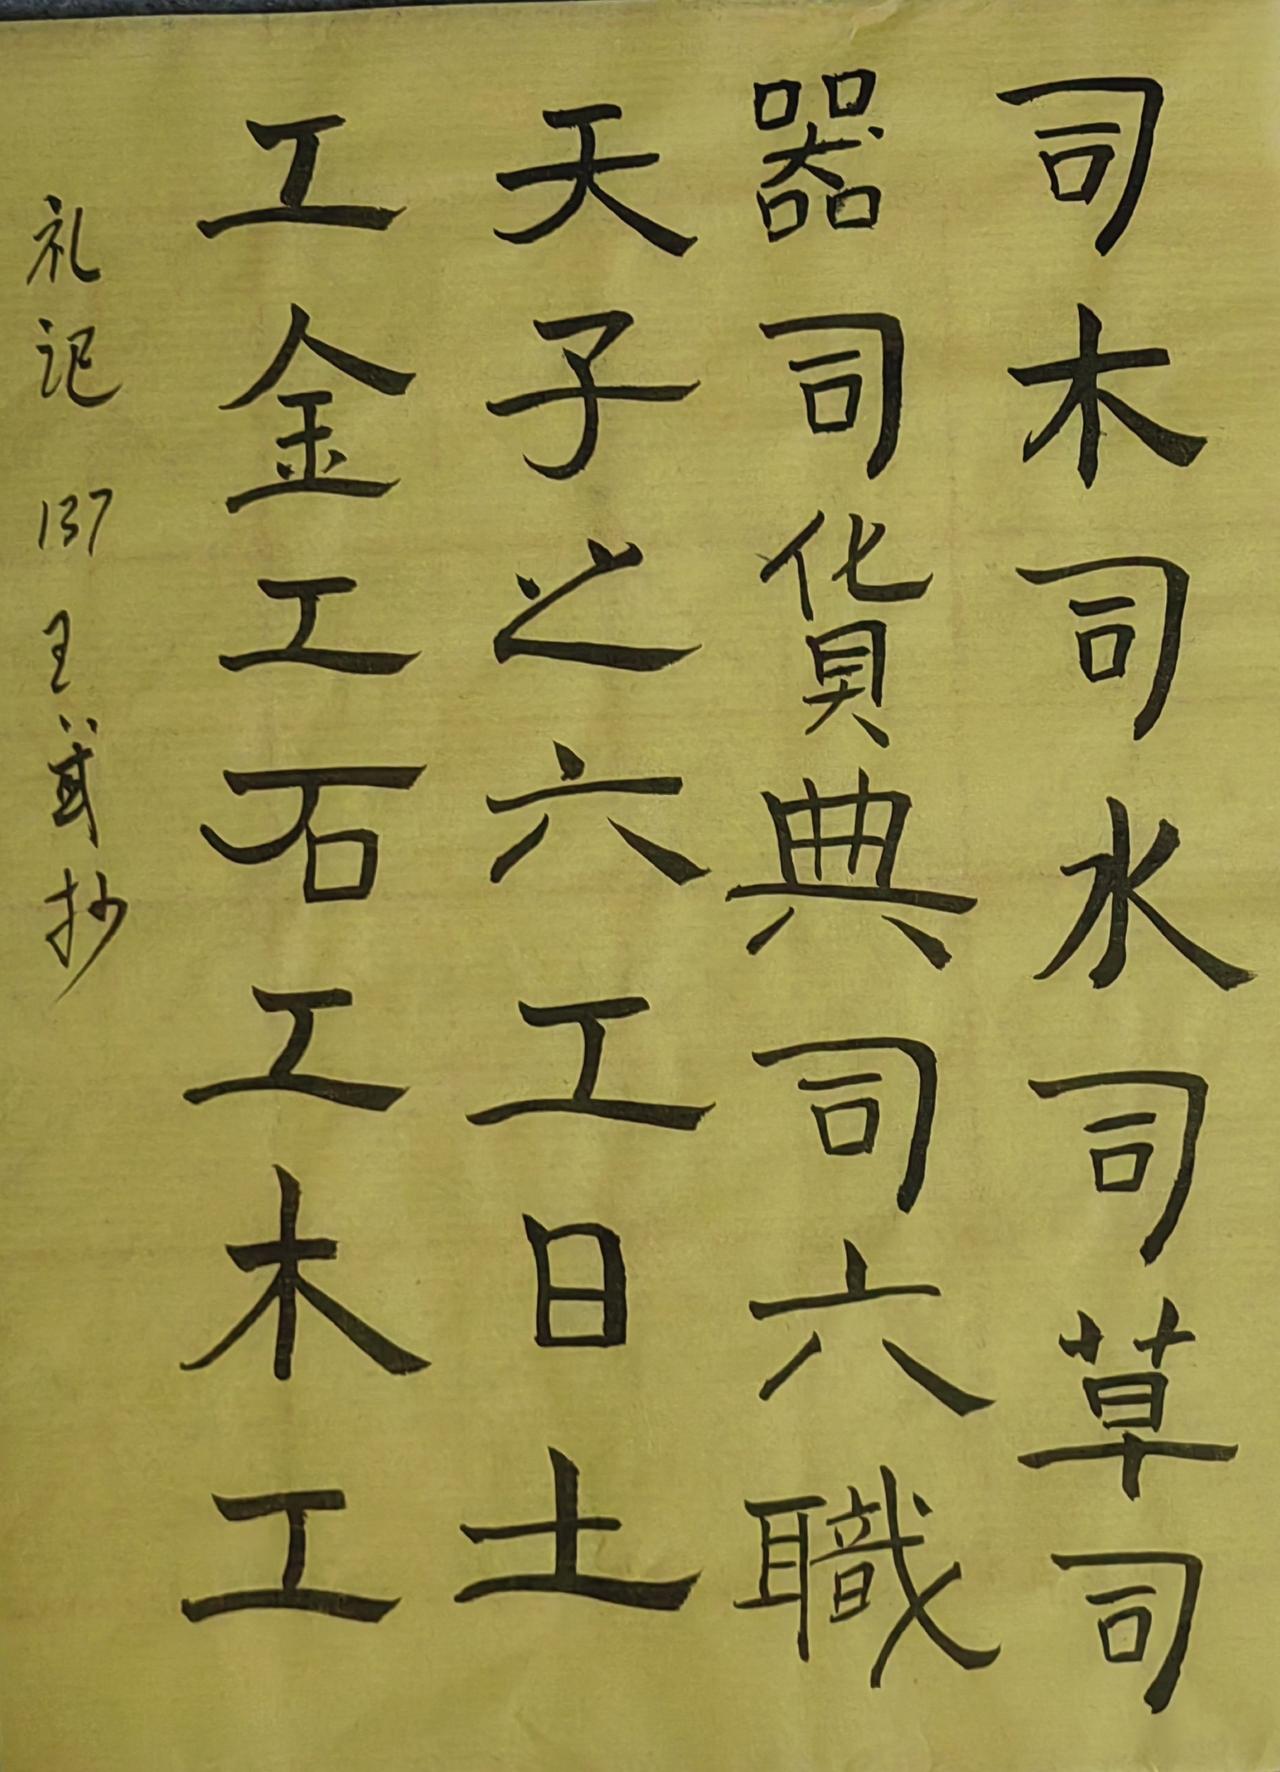 司木司水司草司
器司貨典司六職
天子之六工日土
工金工石工木工
礼记 137 王 抄